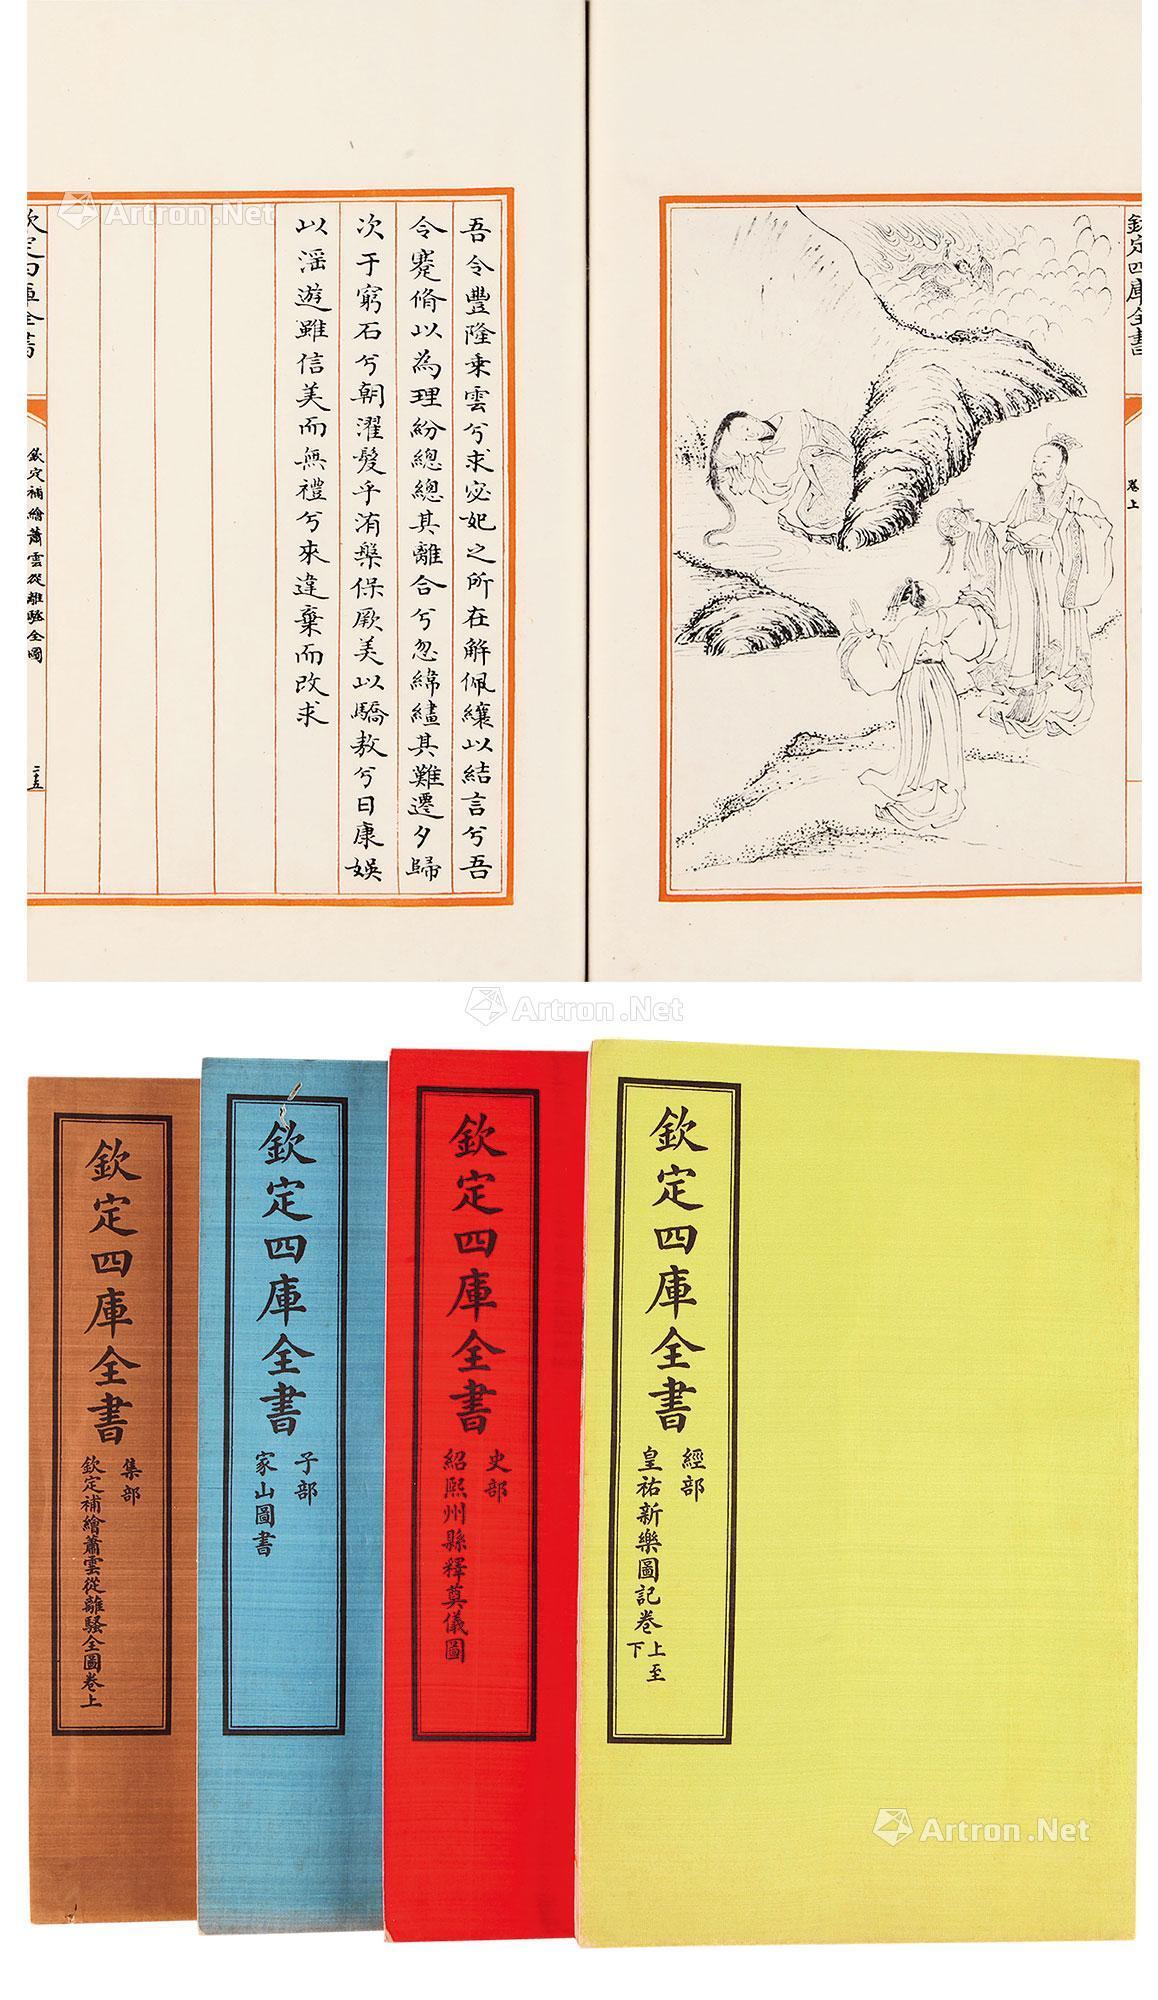 欽定四庫全書
卷上
吾令豐隆乘雲兮求宓妃之所在解佩纕以結言兮吾
令蹇脩以為理紛總總其離合兮忽緯繣其難遷夕歸
次于窮石兮朝濯髮乎洧槃保厥美以驕敖兮日康娛
以淫遊雖信美而無禮兮來違棄而改求
欽定四庫全書
欽定補繪蕭雲從離騷全圖
二五
Artron.Net
Artron.Net
欽定四庫全書
經部
皇祐新樂圖記卷上至下
欽定四庫全書
史部
紹熙州縣釋奠儀圖
欽定四庫全書
子部
家山圖書
欽定四庫全書
集部
欽定補繪蕭雲從離騷全圖卷上
Artron.Net